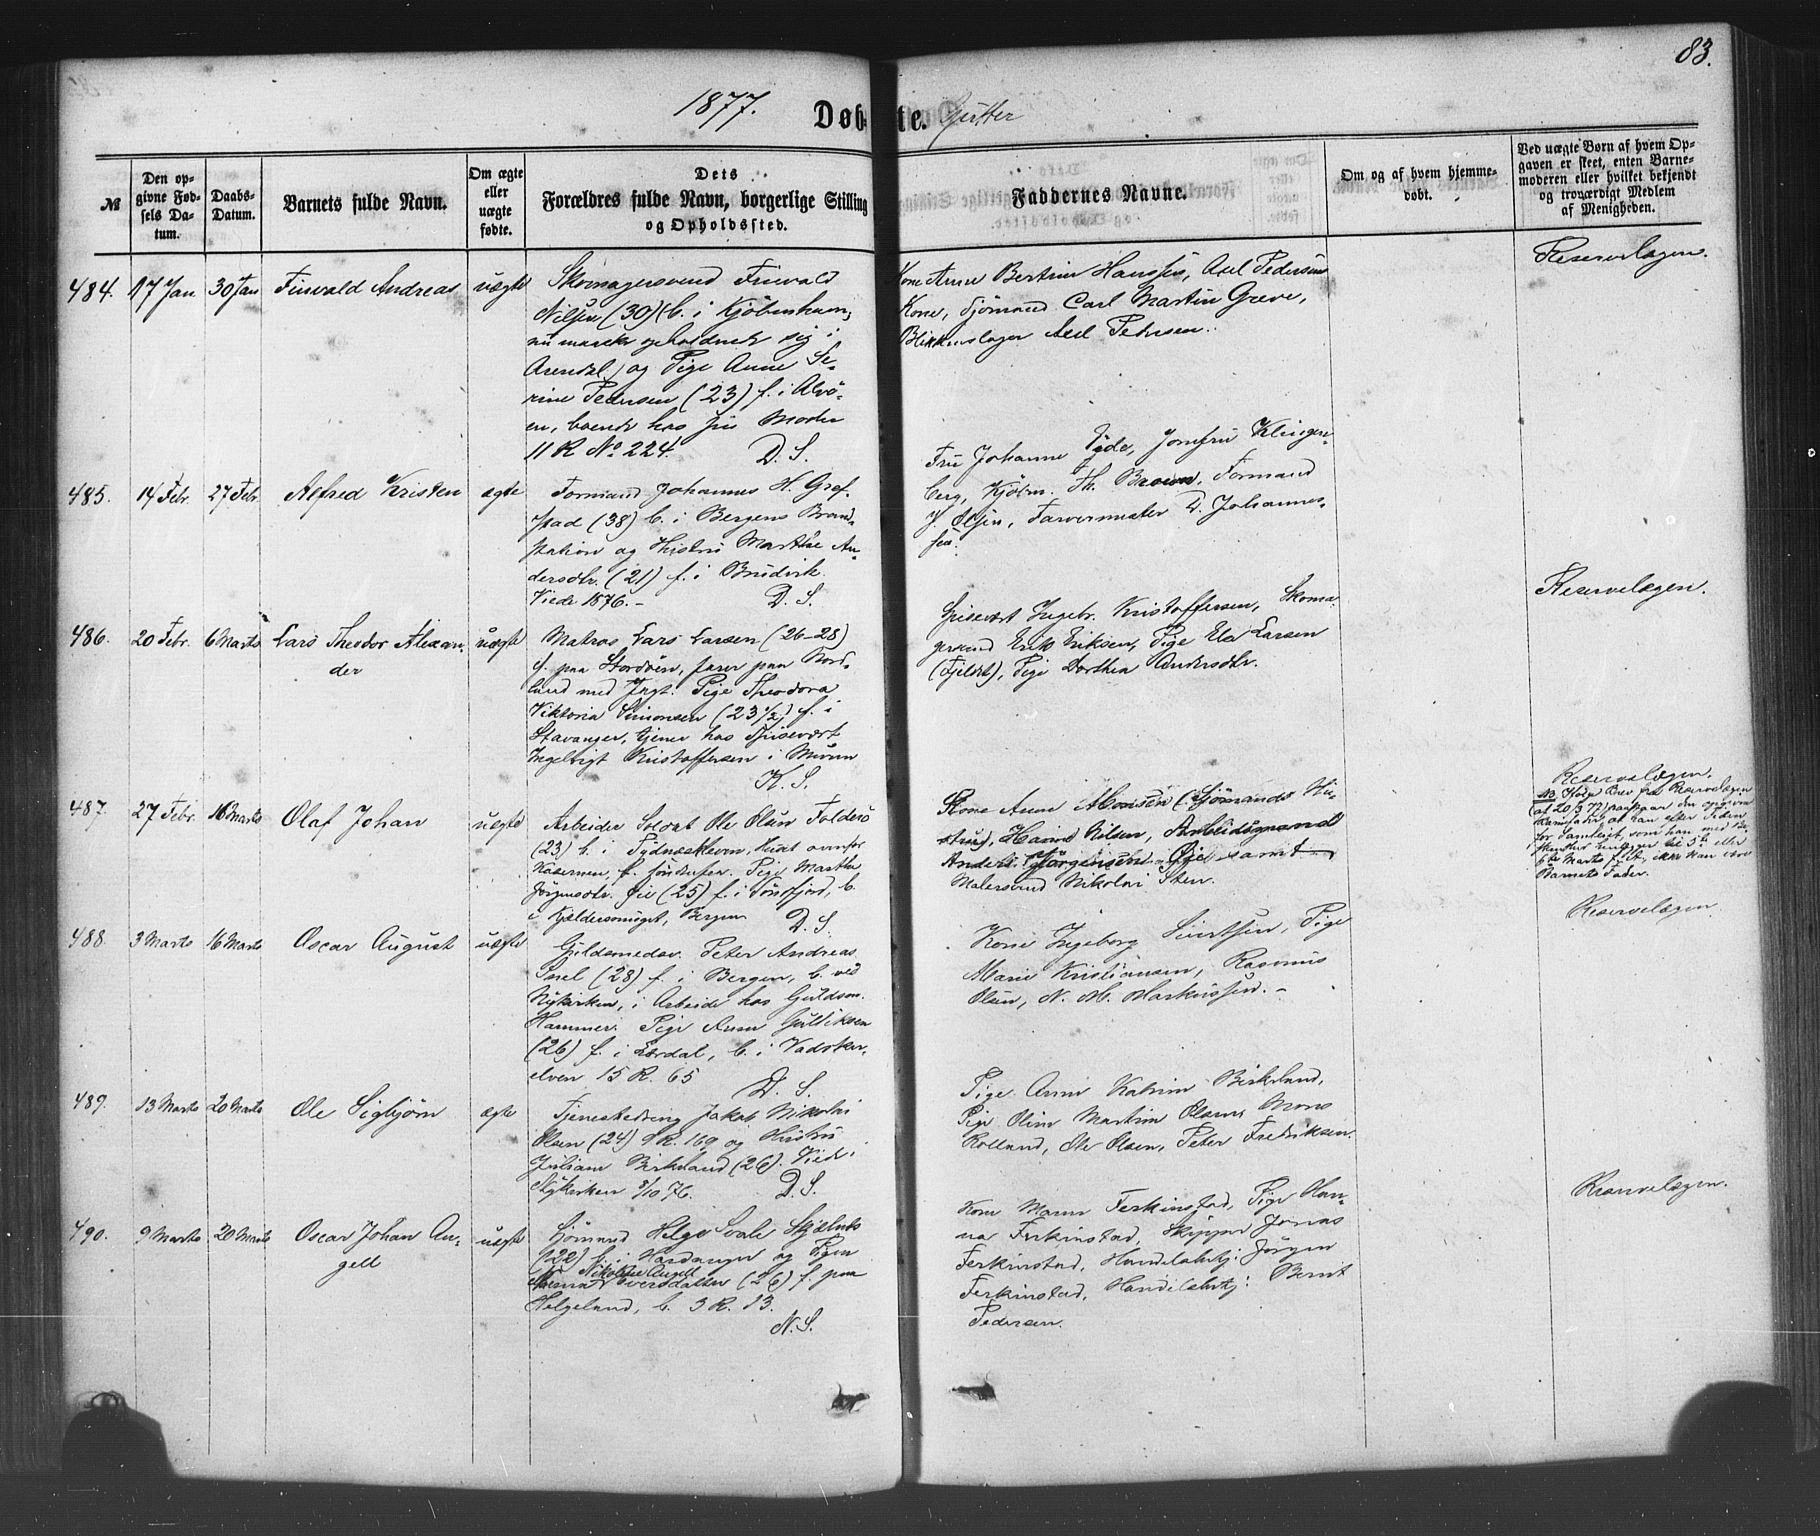 83.
1877.
Døbte. Gutter
№
Den opgivne Fødsels Datum.
Daabs-Datum.
Barnets fulde Navn.
Om ægte eller uægte fødte.
Dets Forældres fulde Navn, borgerlige Stilling og Opholdssted.
Faddernes Navne.
Om og af hvem hjemmedøbt.
Ved uægte Børn af hvem Opgaven er skeet, enten Barnemoderen eller hvilket bekjendt og troværdigt Medlem af Menigheden.
484. 17 Jan 30 Jan Finvald Andreas uægte
Skomagersvend Finvald
Nilsen (30) (b. i Kjöbenhavn,
nu opholdende sig i
Arendal) og Pige Anne Se-
rine Pedersen (23) f. i Alvö-
en, boende hos sin Moder
11 R No 224. D. S.
Kone Anne Bertine Hanssen, Axel Pedersens
Kone, Sjömand Carl Martin Greve,
Blikkenslager Axel Petersen.
Reservelægen.
485. 14 Febr. 27 Febr. Alfred Kristen ægte
Formand Johannes H. Gref-
stad (38) b. i Bergens Brand-
station og Hustru Marthe An-
dersdtr. (21) f. i Brudvik.
Viede 1876. – D. S.
Fru Johanne Jomfru Klingen-
berg, Kjöbm. Th. Brown, Formand
J. Olsen, Farvermester D. Johannes-
sen.
486. 20 Febr. 6 Marts Lars Theodor Alexan-
der uægte
Matros Lars Larsen (26-28)
f. paa Stordöen, farer paa Nord-
land med Jagt. Pige Theodora
Viktoria Simonsen (23 1/2) f. i
Stavanger, tjener hos Spisevært
Ingebrigt Kristoffersen i Muren
K. S.
Spisevært Ingebr. Kristoffersen, Skoma-
gersvend Erik Eriksen, Pige Ele Larsen
(Fjeldet), Pige Dorthea Andersdtr.
Reservelægen.
487. 27 Febr. 16 Marts Olaf Johan uægte
Arbeider Soldat Ole Olsen Foldero
(23) b. i Sydnæskleven, Huset ovenfor
Kasernen, f. Pige Marthe
Jörgensdtr. Öie (25) f. i Söndfjord, b.
i Kjeldersmuget, Bergen D. S.
Kone Anne Monsen (Sjömands Hu-
stru), Hanna Nilsen, Arbeidsmand
Anders Jörgensen Öie samt
Malersvend Nikolai Sten.
Reservelægen.
NB. Ifölge Brev fra Reservelægen
(af 20/3 77) paastaar den opgivne
Barnefader, at han efter Tiden
for Samleiet, som han med
5te eller
6te Marts f. A., ikke kan være
Barnets Fader.
488. 3 Marts 16 Marts Oscar August uægte
Guldsmedsv. Peter Andreas
Snel (28) f. i Bergen, b. ved
Nykirken, i Arbeide hos Guldsm.
Hammer. Pige Anne Gulliksen
(26) f. i Lærdal, b. i Vadsker-
elven 15 R. 65 D. S.
Kone Ingeborg Sivertsen, Pige
Marie Kristiansen, Rasmus
Olsen, N. M. Markussen. –
Reservelægen.
489. 13 Marts 20 Marts Ole Sigbjörn ægte
Tjenestedreng Jakob Nikolai
Olsen (24) 4 R. 169 og Hustru
Juliane Birkeland (26). Viede i
Nykirken 8/10 76. D. S.
Pige Anne Katrine Birkeland,
Pige Oline Martine Olsen, Mons
Rolland, Ole Olsen, Peter Fredriksen.
490. 9 Marts 20 Marts Oscar Johan An-
gell uægte
Sjömand Helge Svale Skjelnes
(22) b. i Hardanger og Pigen
Nikoline Angell
Iversdatter (26) f. paa
Helgeland, b. 3 R. 13.
N. S.
Kone Maren Ferkinstad, Pige Han-
na Ferkinstad, Skipper Jonas
Ferkinstad, Handelsbetj: Jörgen
Ferkinstad, Handelsbetj: Bernt
Pedersen.
Reservelægen.